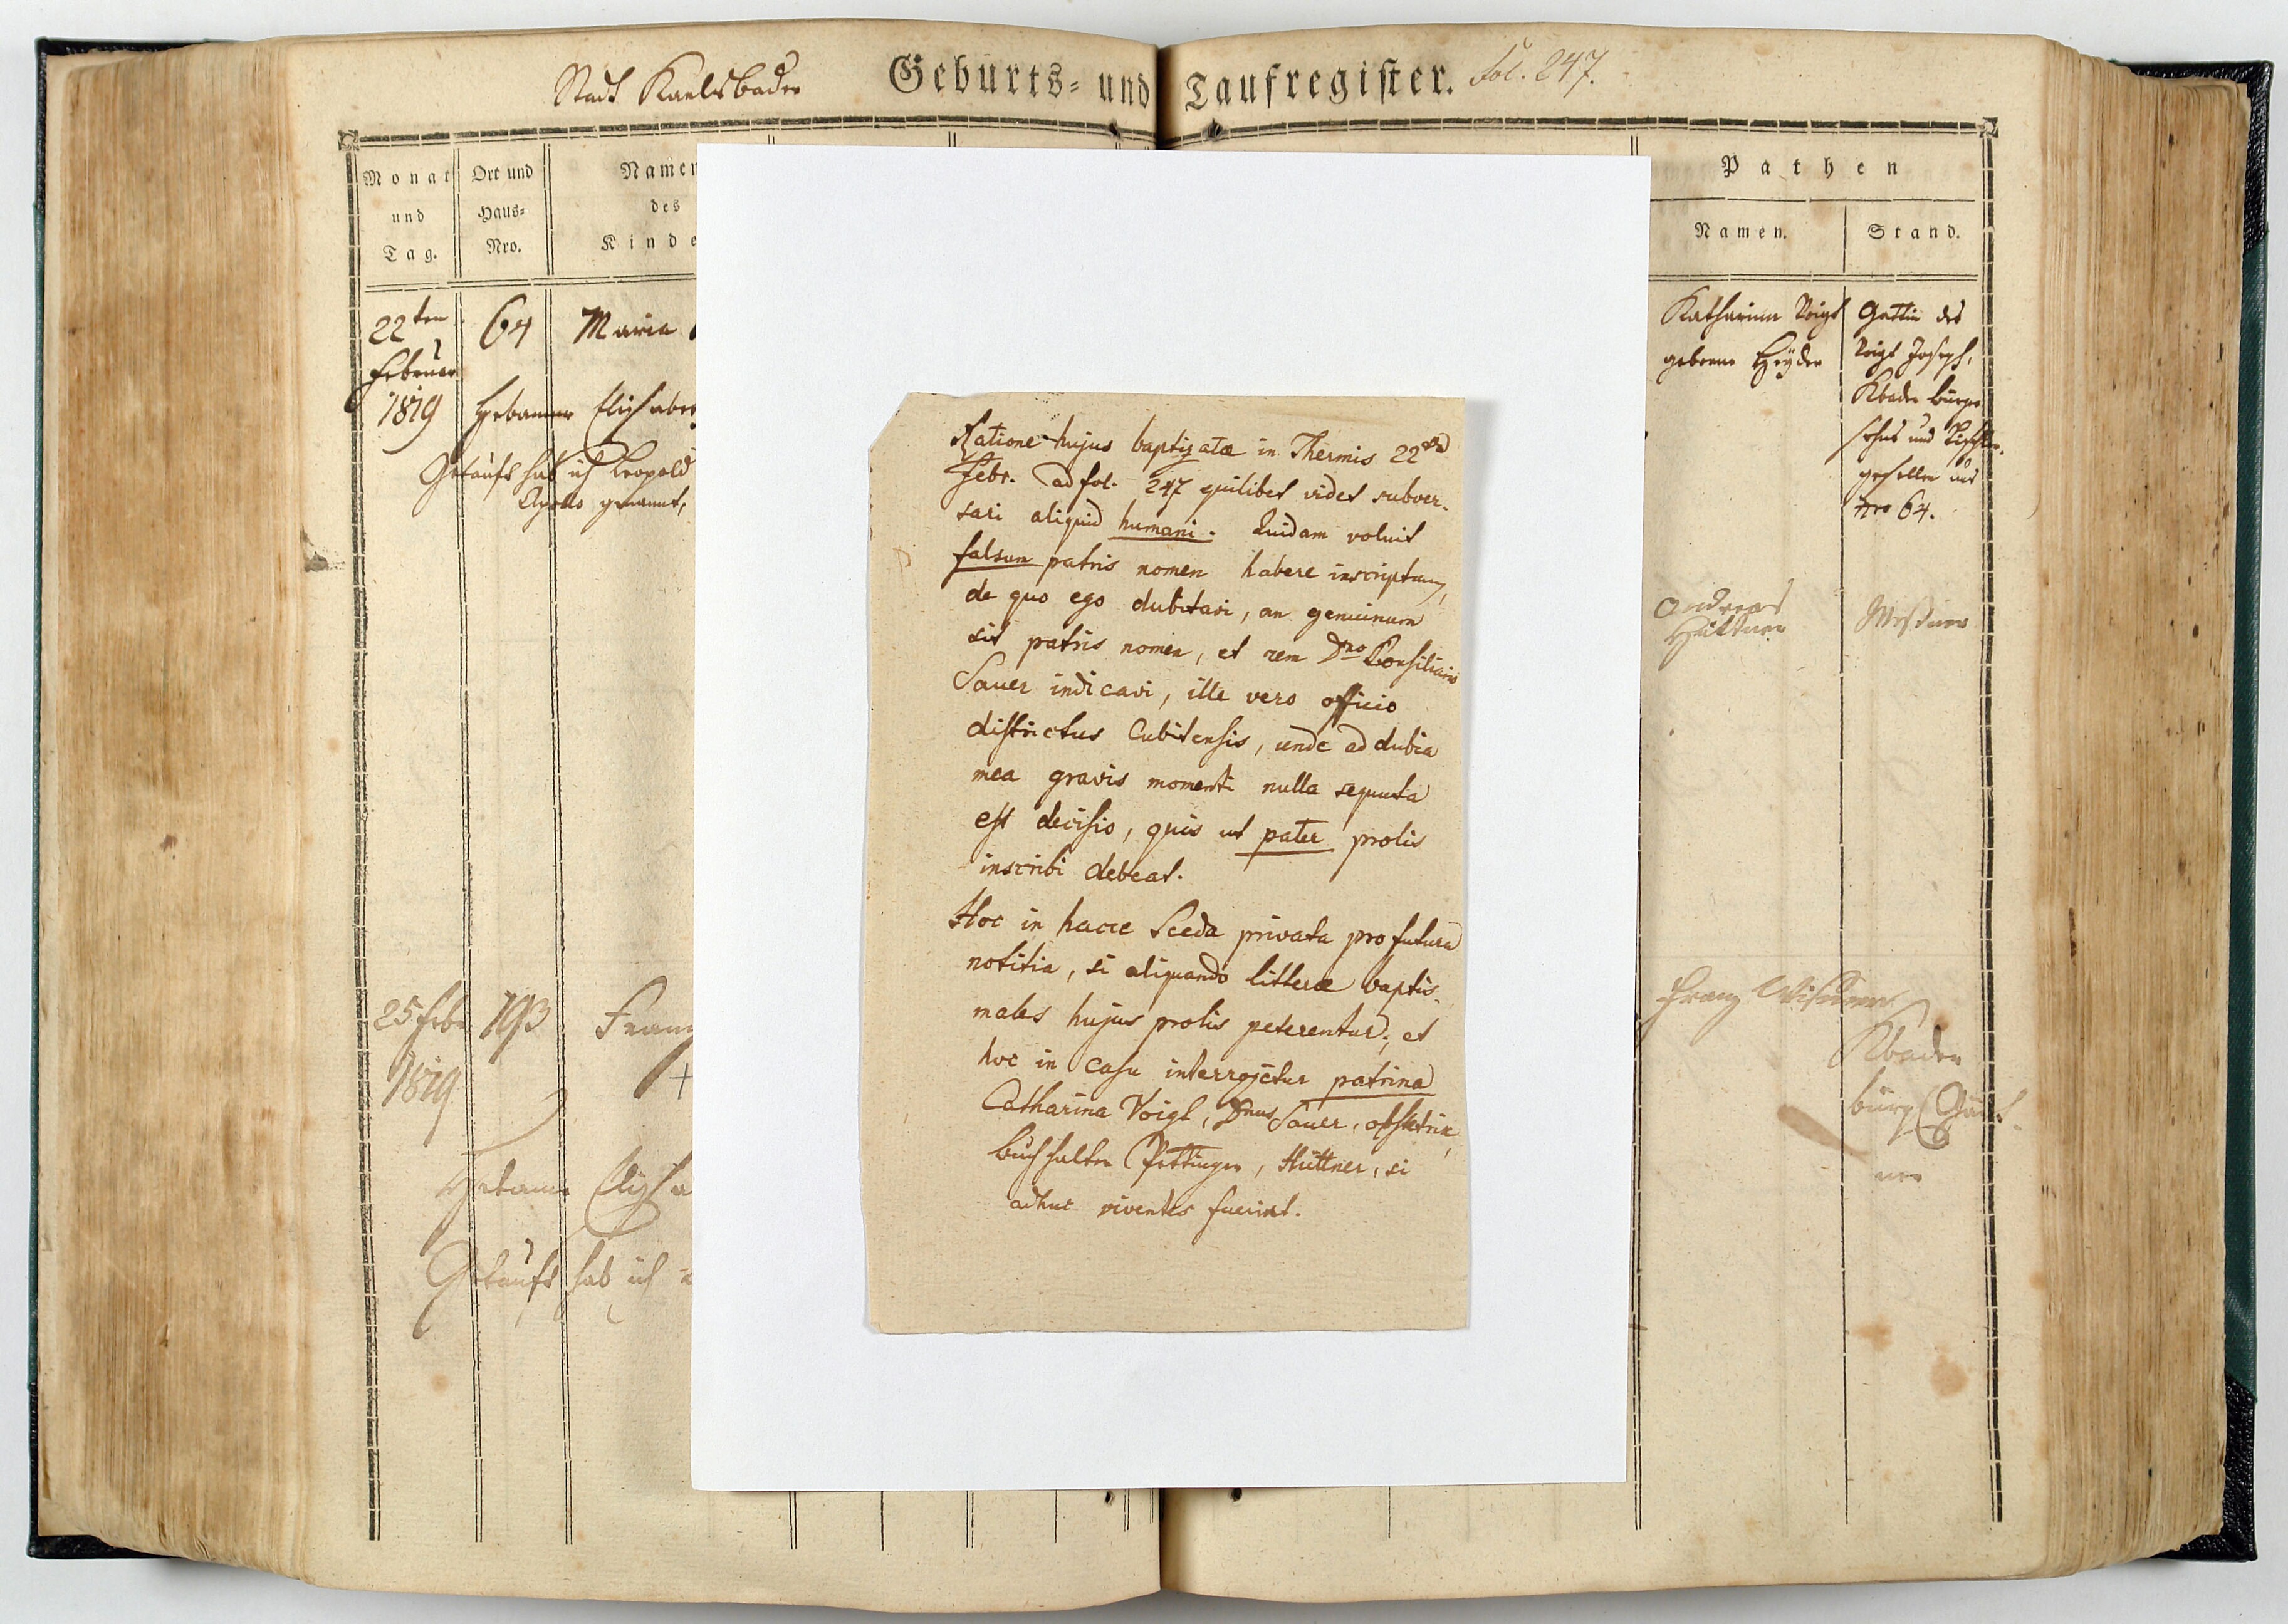 Stadt Karlsbader
Geburts- und Taufregister. Fol. 247.
Monat und Tag.
Ort und Haus-Nro.
Namen
des
Kinde
Pathen
Namen.
Stand.
22ten
Februar
1819
64
Maria
Hebamme Elisabe
Getauft hab ich Leopold
Apollo genannt,
Katharina Voigt
geborne Heyder
Gattin des
Voigt Joseph,
Kbader Bürgers
sohns und Tischler
gesellen aus
Nro 64.
Andreas
Hüttner
Meßner
25 Febr
1819
193
Franz
+
Hebamme Elisa
Getauft hab ich
Franz
Kbader
bürg
ner
Ratione hujus baptizatæ in Thermis 22da
Febr. ad fol. 247 quilibet videt subver-
sari aliquid humani. Quidam voluit
falsum patris nomen habere inscriptum,
de quo ego dubitavi, an genuinum
sit patris nomen, et rem Dno Consiliario
Sauer indicavi, ille vero officio
districtus Cubitensis, unde ad dubia
mea gravis momenti nulla sequuta
est decisio, quis ut pater prolis
inscribi debeat.
Hoc in hacce Sceda privata pro futura
notitia, si aliquando litteræ baptis-
males hujus prolis peterentur; et
hoc in casu interrogetur patrina
Catharina Voigt, Dnus Sauer, obstetrix,
Buchhalter Pöttinger, Hüttner, si
adhuc viventes fuerint.